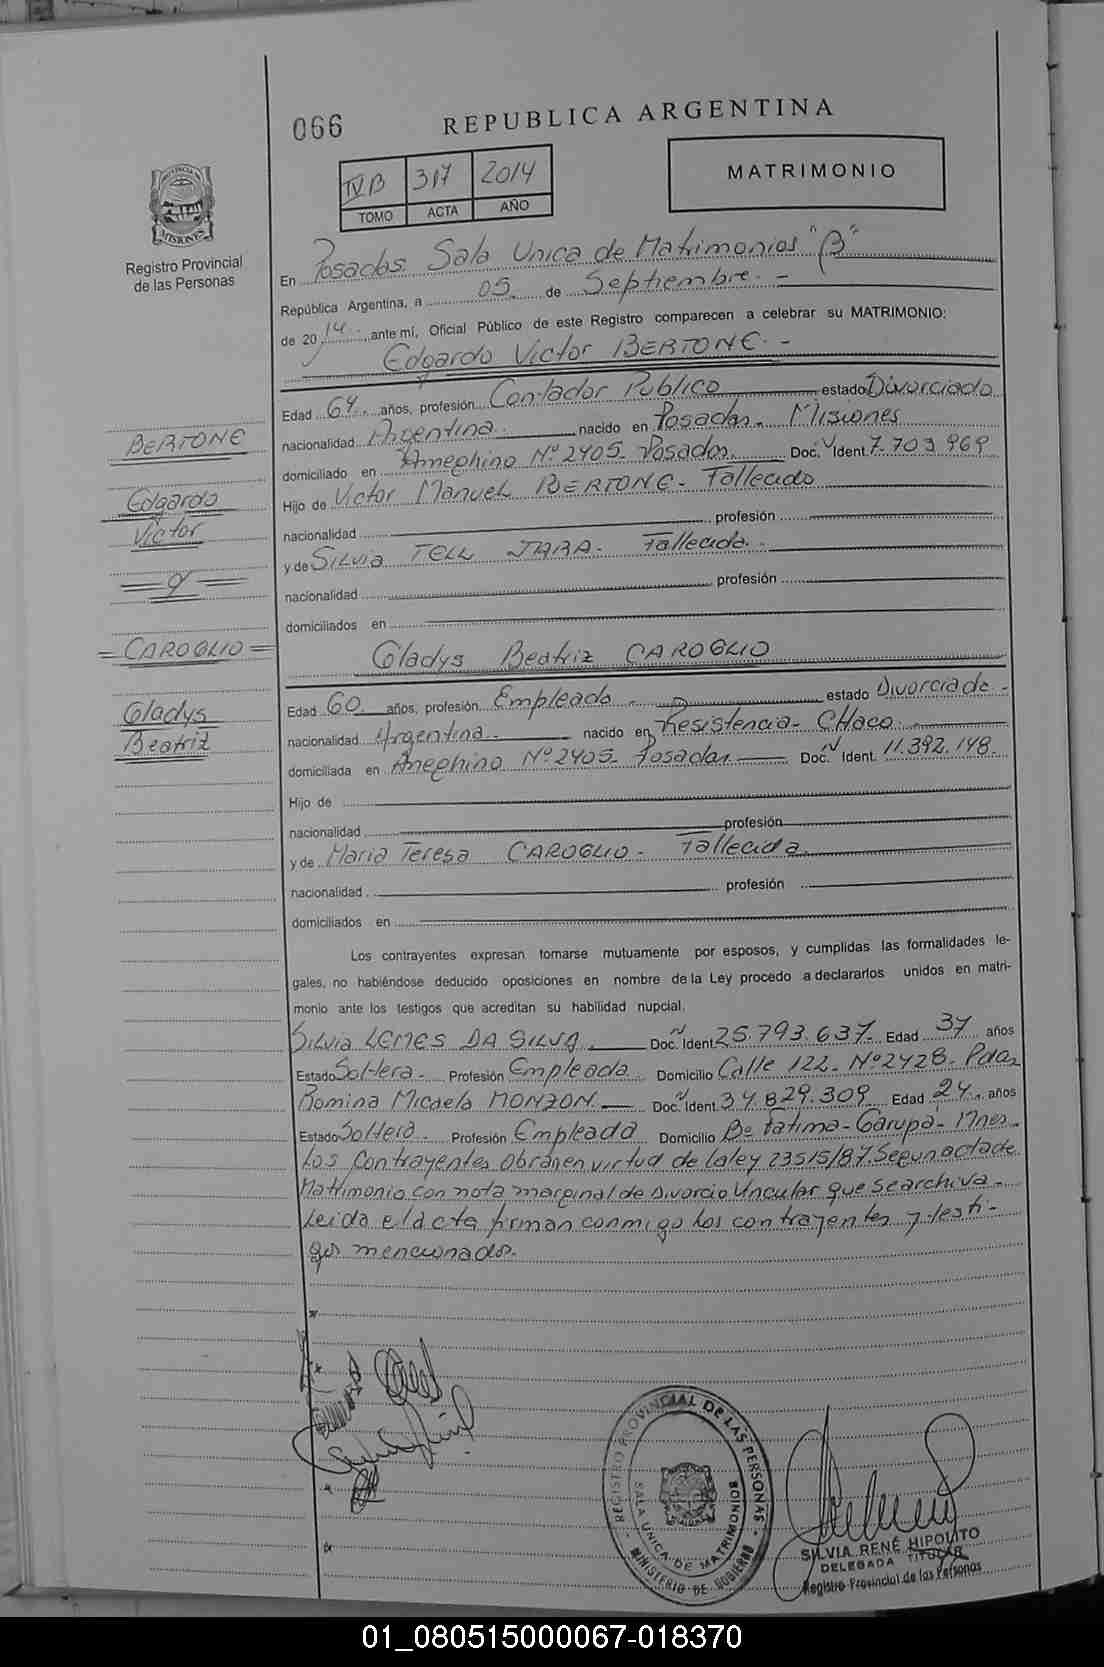 066
REPUBLICA ARGENTINA
IVB 317 2014
TOMO ACTA AÑO
MATRIMONIO
PROVINCIA DE
MISIONES
Registro Provincial
de las Personas
En Posadas. Sala Unica de Matrimonios "B"
República Argentina, a 05 de Septiembre. -
de 20 14 ante mí, Oficial Público de este Registro comparecen a celebrar su MATRIMONIO:
Edgardo Victor BERTONE. -
Edad 64 años, profesión Contador Publico estado Divorciado
BERTONE
nacionalidad Argentina. nacido en Posadas. Misiones
domiciliado en Ameghino Nº 2405. Posadas. Doc. N Ident. 7.703.969
Edgardo
Victor
Hijo de Victor Manuel BERTONE - Fallecido
nacionalidad profesión
y de Silvia TELL JARA. Fallecida.
= y =
nacionalidad profesión
domiciliados en
= CAROGLIO =
Gladys Beatriz CAROGLIO
Edad 60 años, profesión Empleada. estado Divorciada -
Gladys
Beatriz
nacionalidad Argentina. nacido en Resistencia - CHaco.
domiciliada en Ameghino Nº 2405. Posadas. Doc. N Ident. 11.392.148.
Hijo de
nacionalidad profesión
y de Maria Teresa CAROGLIO - Fallecida.
nacionalidad profesión
domiciliados en
Los contrayentes expresan tomarse mutuamente por esposos, y cumplidas las formalidades le-
gales, no habiéndose deducido oposiciones en nombre de la Ley procedo a declararlos unidos en matri-
monio ante los testigos que acreditan su habilidad nupcial.
Silvia LEMES DA SILVA. Doc. N Ident. 25.793.637. Edad 37 años
Estado Soltera. Profesión Empleada Domicilio Calle 122. Nº 2428. Pdas
Romina Micaela MONZON. Doc. N Ident. 34.829.309 Edad 24. años
Estado Soltera. Profesión Empleada Domicilio Bº Fatima - Garupa - Mnes.
Los contrayentes obran en virtud de la ley 23515/87. Segun acta de
Matrimonio con nota marginal de Divorcio Vincular que se archiva.
Leida el acta firman conmigo los contrayentes y testi-
gos mencionados.
REGISTRO PROVINCIAL DE LAS PERSONAS
SALA UNICA DE MATRIMONIOS
MINISTERIO DE GOBIERNO
SILVIA RENÉ HIPOLITO
DELEGADA TITULAR
Registro Provincial de las Personas
01_080515000067-018370